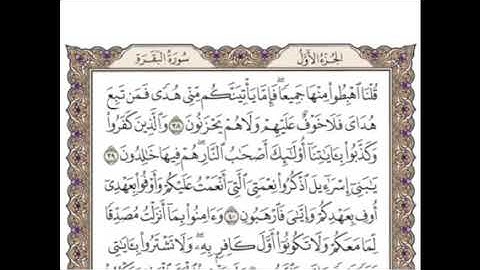 الجزء الأول سورة البقرة
قُلْنَا ٱهْبِطُوا۟ مِنْهَا جَمِيعًا ۖ فَإِمَّا يَأْتِيَنَّكُم مِّنِّى هُدًى فَمَن تَبِعَ
هُدَاىَ فَلَا خَوْفٌ عَلَيْهِمْ وَلَا هُمْ يَحْزَنُونَ ٣٨ وَٱلَّذِينَ كَفَرُوا۟
وَكَذَّبُوا۟ بِـَٔايَـٰتِنَآ أُو۟لَـٰٓئِكَ أَصْحَـٰبُ ٱلنَّارِ ۖ هُمْ فِيهَا خَـٰلِدُونَ ٣٩
يَـٰبَنِىٓ إِسْرَٰٓءِيلَ ٱذْكُرُوا۟ نِعْمَتِىَ ٱلَّتِىٓ أَنْعَمْتُ عَلَيْكُمْ وَأَوْفُوا۟ بِعَهْدِىٓ
أُوفِ بِعَهْدِكُمْ وَإِيَّـٰىَ فَٱرْهَبُونِ ٤٠ وَءَامِنُوا۟ بِمَآ أَنزَلْتُ مُصَدِّقًا
لِّمَا مَعَكُمْ وَلَا تَكُونُوٓا۟ أَوَّلَ كَافِرٍۭ بِهِۦ ۖ وَلَا تَشْتَرُوا۟ بِـَٔايَـٰتِى